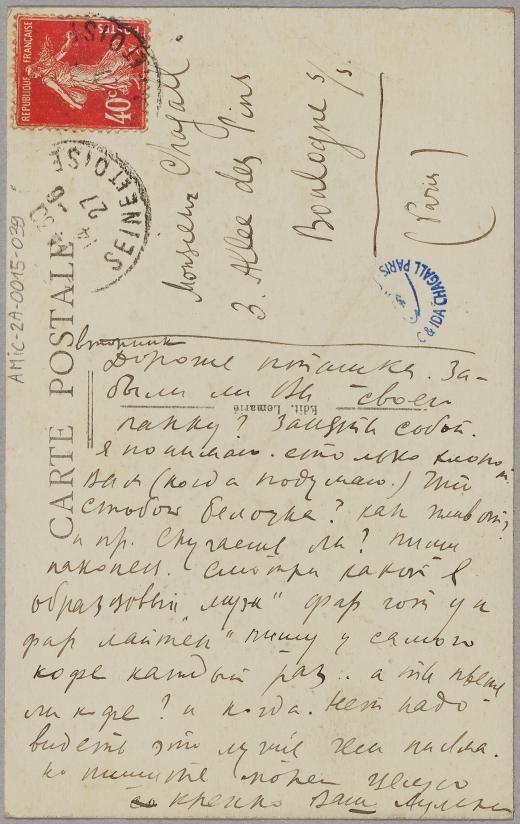 REPUBLIQUE FRANÇAISE
POSTES
40c
SEINE ET OISE
27
Monsieur Chagall
3. Allée des Pins
Boulogne s/s.
(Paris)
C & IDA CHAGALL PARIS
AMIC-2A-0015-039
CARTE POSTALE
Edit. Lemarié
вторник
Дорогие За-
были ли Вы своего
папку? Заняты собой.
Я понимаю. столько хлопот
Вам (когда подумаю.) Что
с тобой белочка? как живот?
и пр. Скучаешь ли? пиши
наконец. Смотри какой я
образцовый муж"
пишу у самого
кофе каждый раз.. а ты пьешь
ли кофе? и когда. Нет надо
видеть это лучше чем письма.
но пишите целую
крепко Ваш